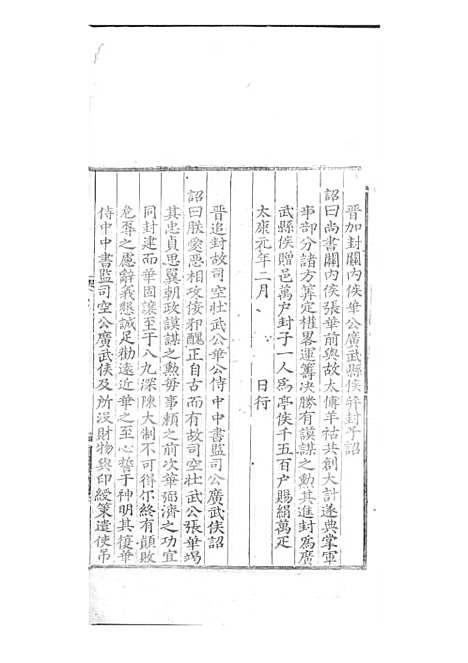 晉加封關內侯華公廣武縣侯并封子詔
詔曰尚書關內侯張華前與故太傅羊祜共創大計遂典掌軍
事部分諸方筭定權畧運籌決勝有謨謀之勲其進封爲廣
武縣侯贈邑萬戶封子一人爲亭侯千五百戶賜絹萬疋
太康元年二月 日行
晉追封故司空壯武公華公侍中中書監司公廣武侯詔
詔曰朕愛惡相攻佞邪醜正自古而有故司空壯武公張華竭
其忠貞思翼朝政謨謀之勲每事賴之前次華弼濟之功宜
同封建而華固讓至于八九深陳大制不可得尓終有顛敗
危辱之慮辭義懇誠足勸遠近華之至心誓于神明其復華
侍中中書監司空公廣武侯及所沒財物與印綬策遣使弔